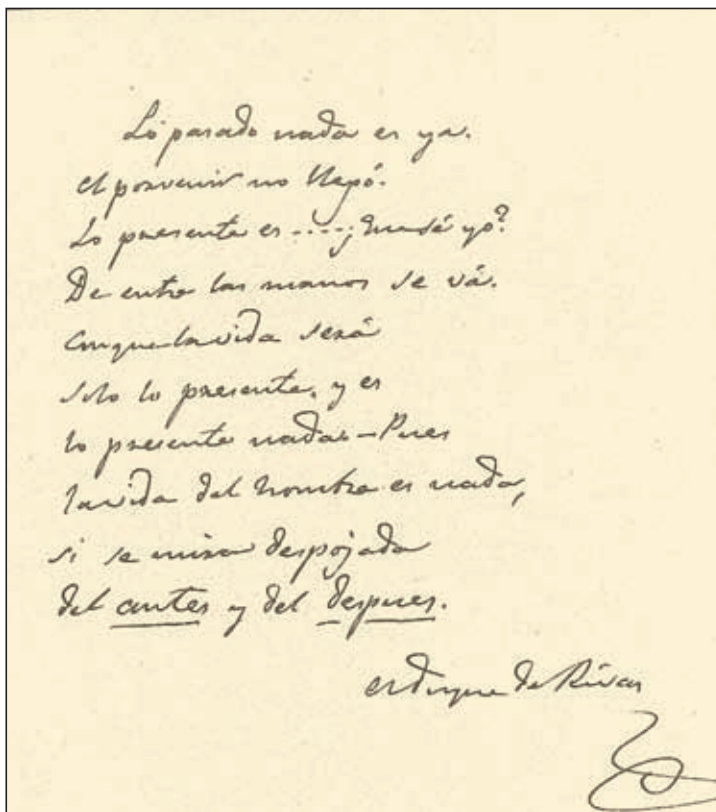 Lo pasado nada es ya.
el porvenir no llegó.
Lo presente es .....¿que sé yo?
De entre las manos se vá.
Conque la vida será
solo lo presente, y es
lo presente nada. — Pues
la vida del hombre es nada,
si se mira despojada
del antes y del despues.
el duque de Rivas